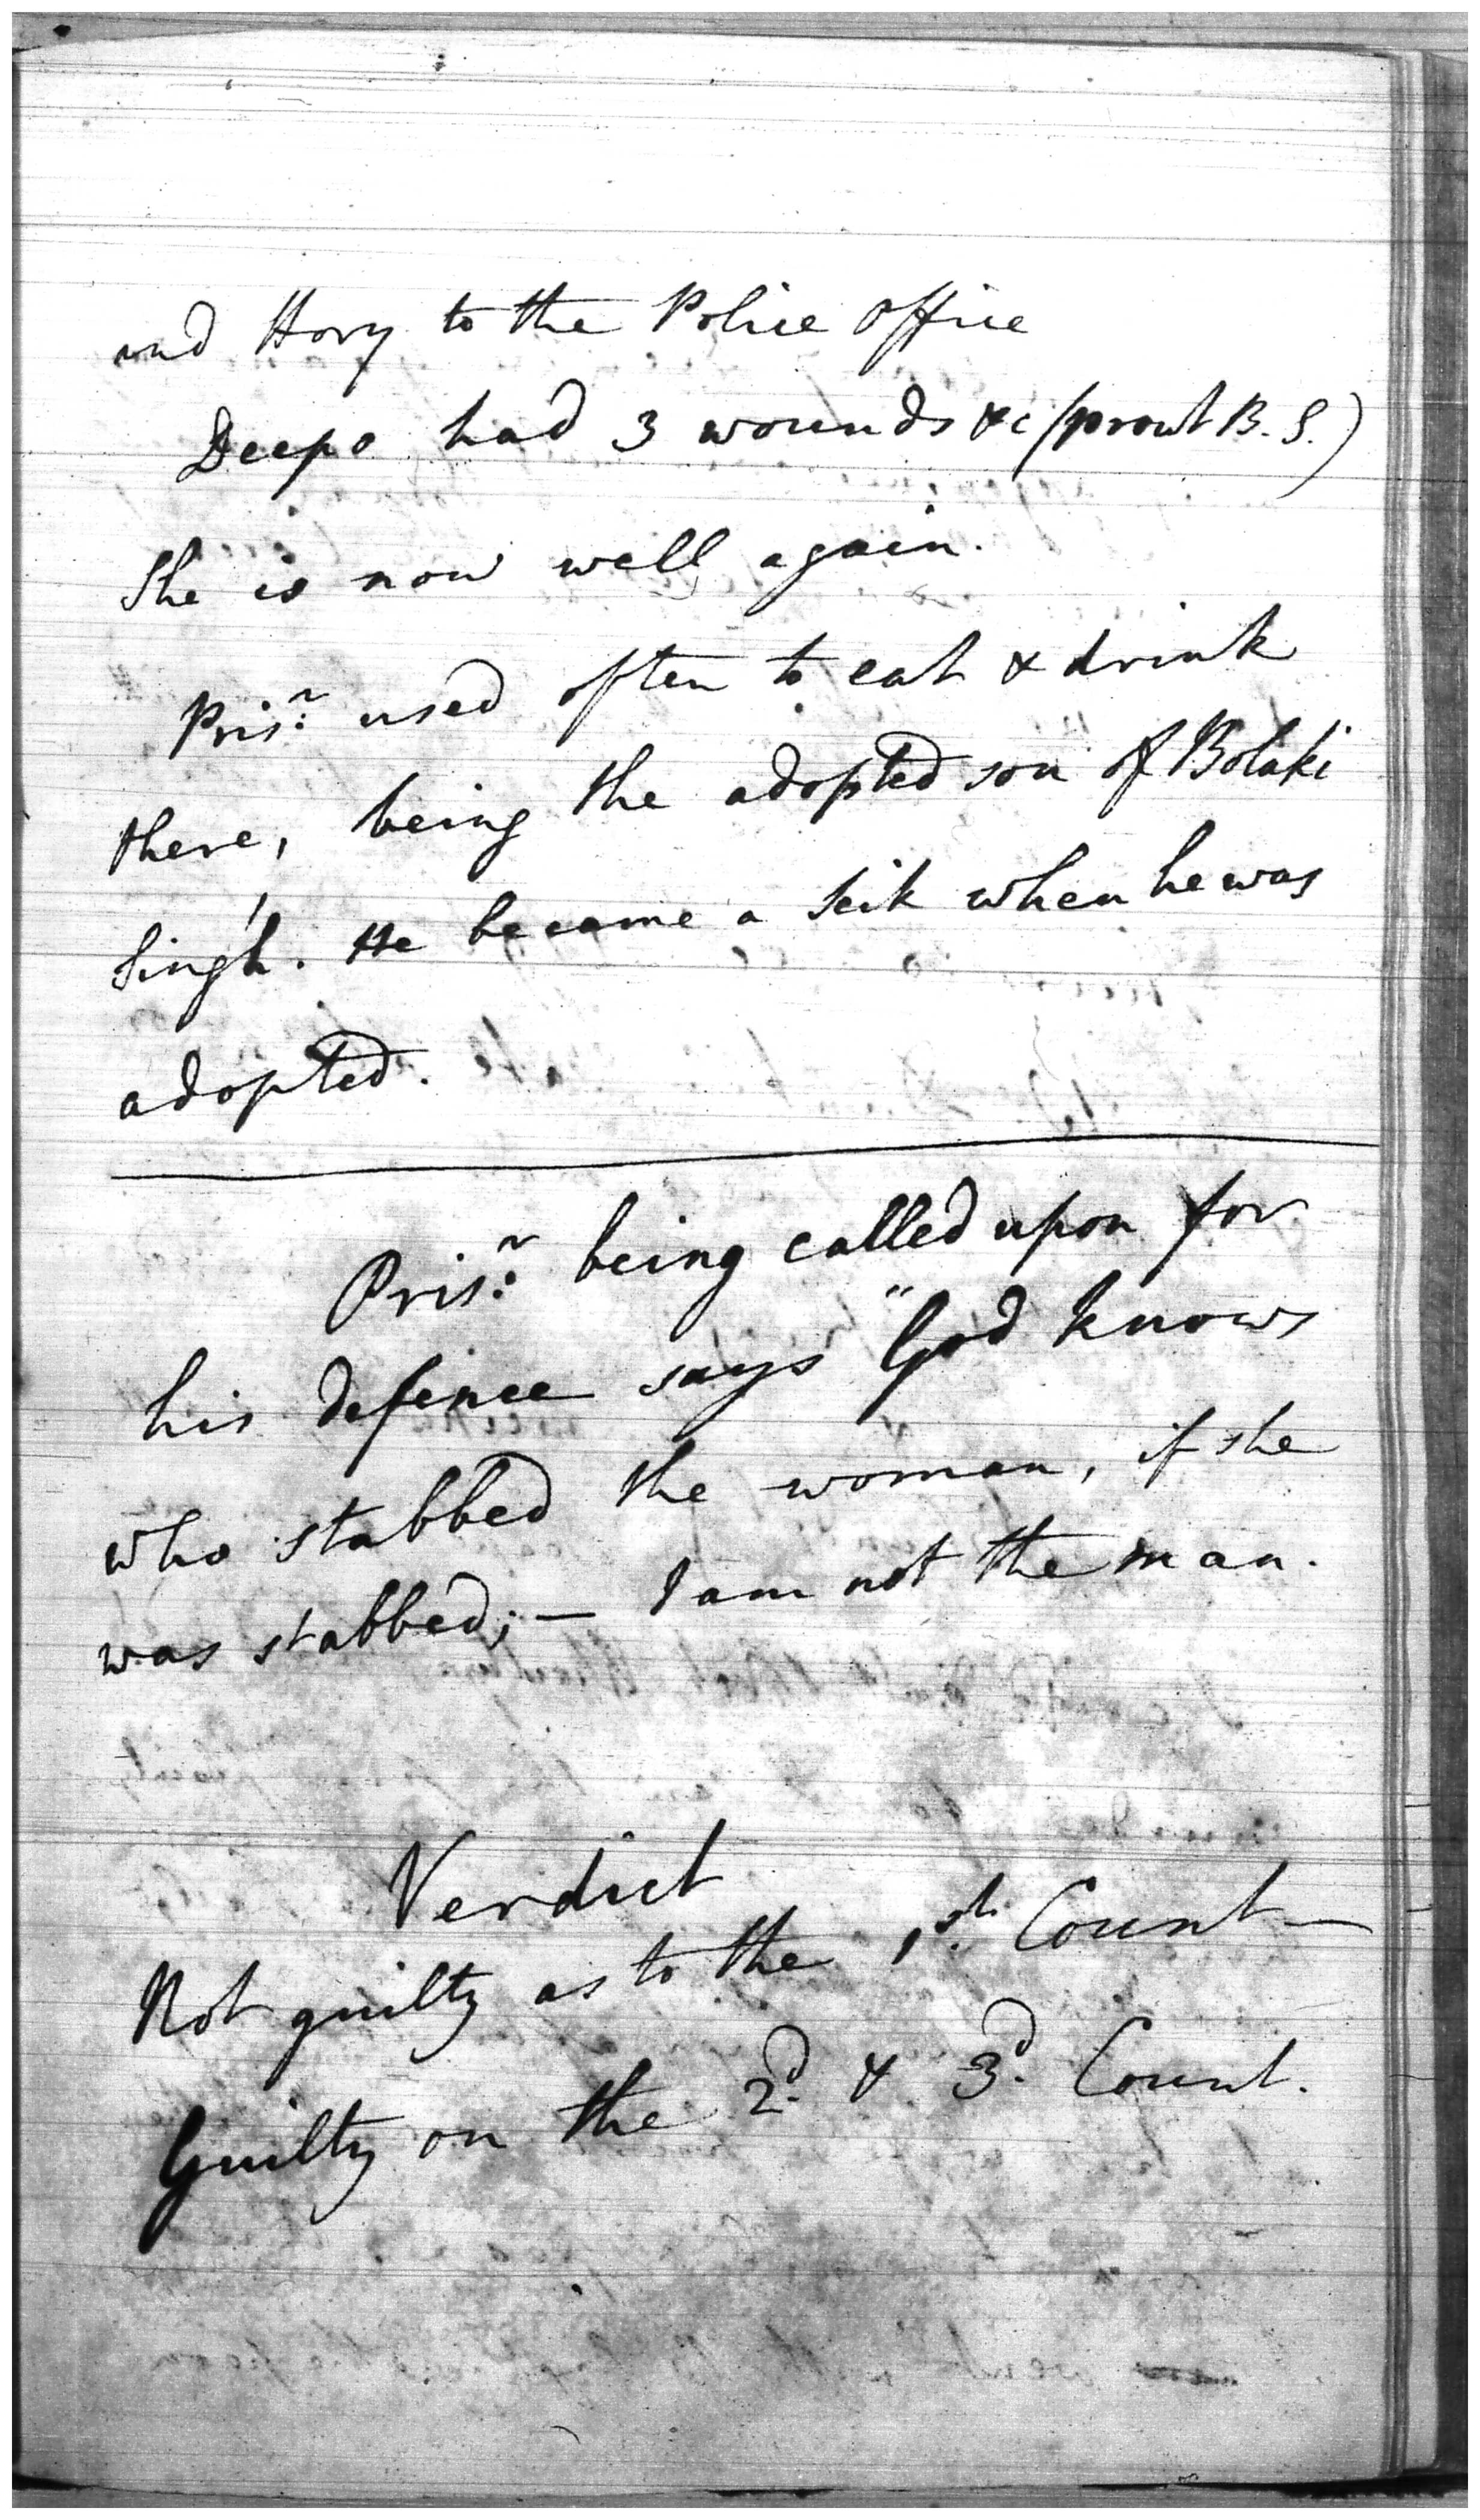 and Hory to the Police Office
Deepo had 3 wounds &c (prout B. S.)
She is now well again.
Prisr. used often to eat & drink
there, being the adopted son of Bolaki
Singh. He became a Seik when he was
adopted.
Prisr. being called upon for
his defence says "God knows
who stabbed the woman, if she
was stabbed; — I am not the man.
Verdict
Not guilty as to the 1st. Count —
Guilty on the 2d. & 3d. Count.